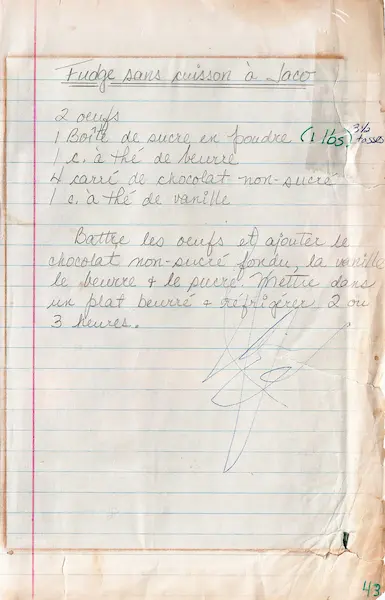 Fudge sans cuisson à Jaco
2 oeufs
1 Boîte de sucre en poudre (1 lbs.) 3½ tasses
1 c. à thé de beurre
4 carré de chocolat non-sucré
1 c. à thé de vanille
Battre les oeufs et ajouter le
chocolat non-sucré fondu, la vanille
le beurre + le sucre. Mettre dans
un plat beurré + réfrigérer 2 ou
3 heures.
43